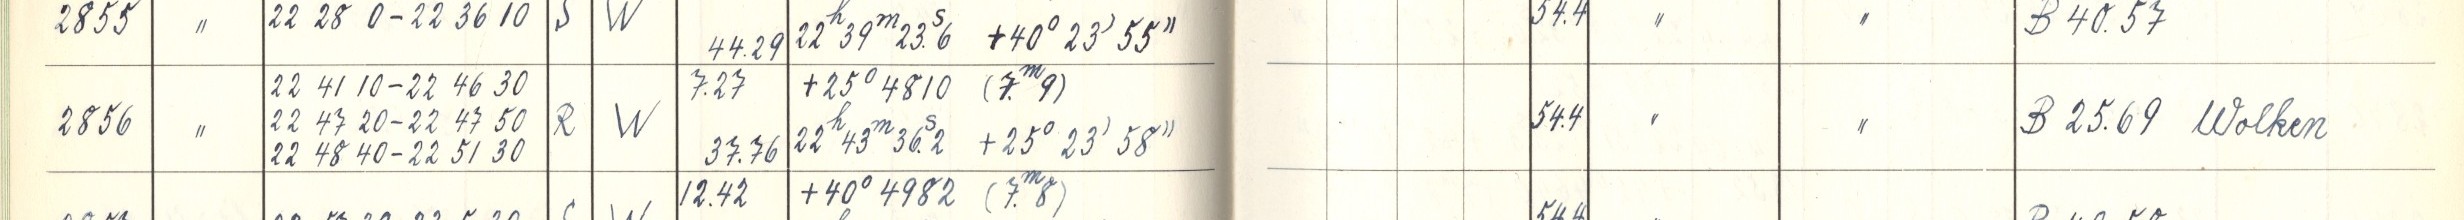 2855 " 22 28 0-22 36 10 S W 44.29 22ʰ39ᵐ23ˢ.6 +40° 23' 55" 54.4 " " B 40.57
22 41 10-22 46 30 7.27 +25° 4810 (7ᵐ.9)
2856 " 22 47 20-22 47 50 R W 54.4 " " B 25.69 Wolken
22 48 40-22 51 30 37.76 22ʰ43ᵐ36ˢ.2 +25° 23' 58"
12.42 +40° 4982 (7ᵐ.8)
W 54.4